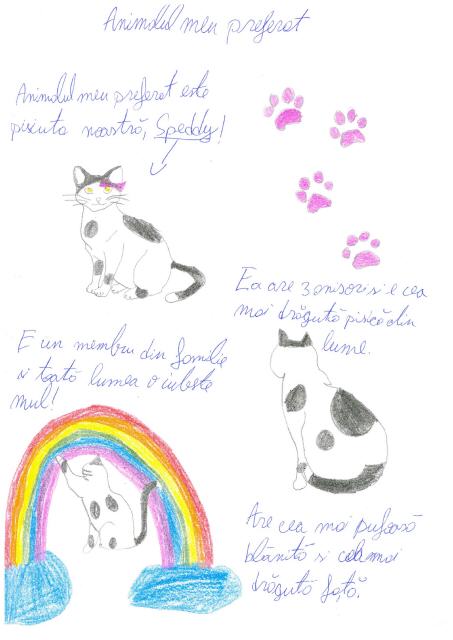 Animalul meu preferat
Animalul meu preferat este
pisicuta noastră, Speddy!
Ea are 3 anisori si e cea
mai drăguță pisică din
lume.
E un membru din familie
si toată lumea o iubeste
mult!
Are cea mai pufoasă
blăniță si cea mai
drăguță față.